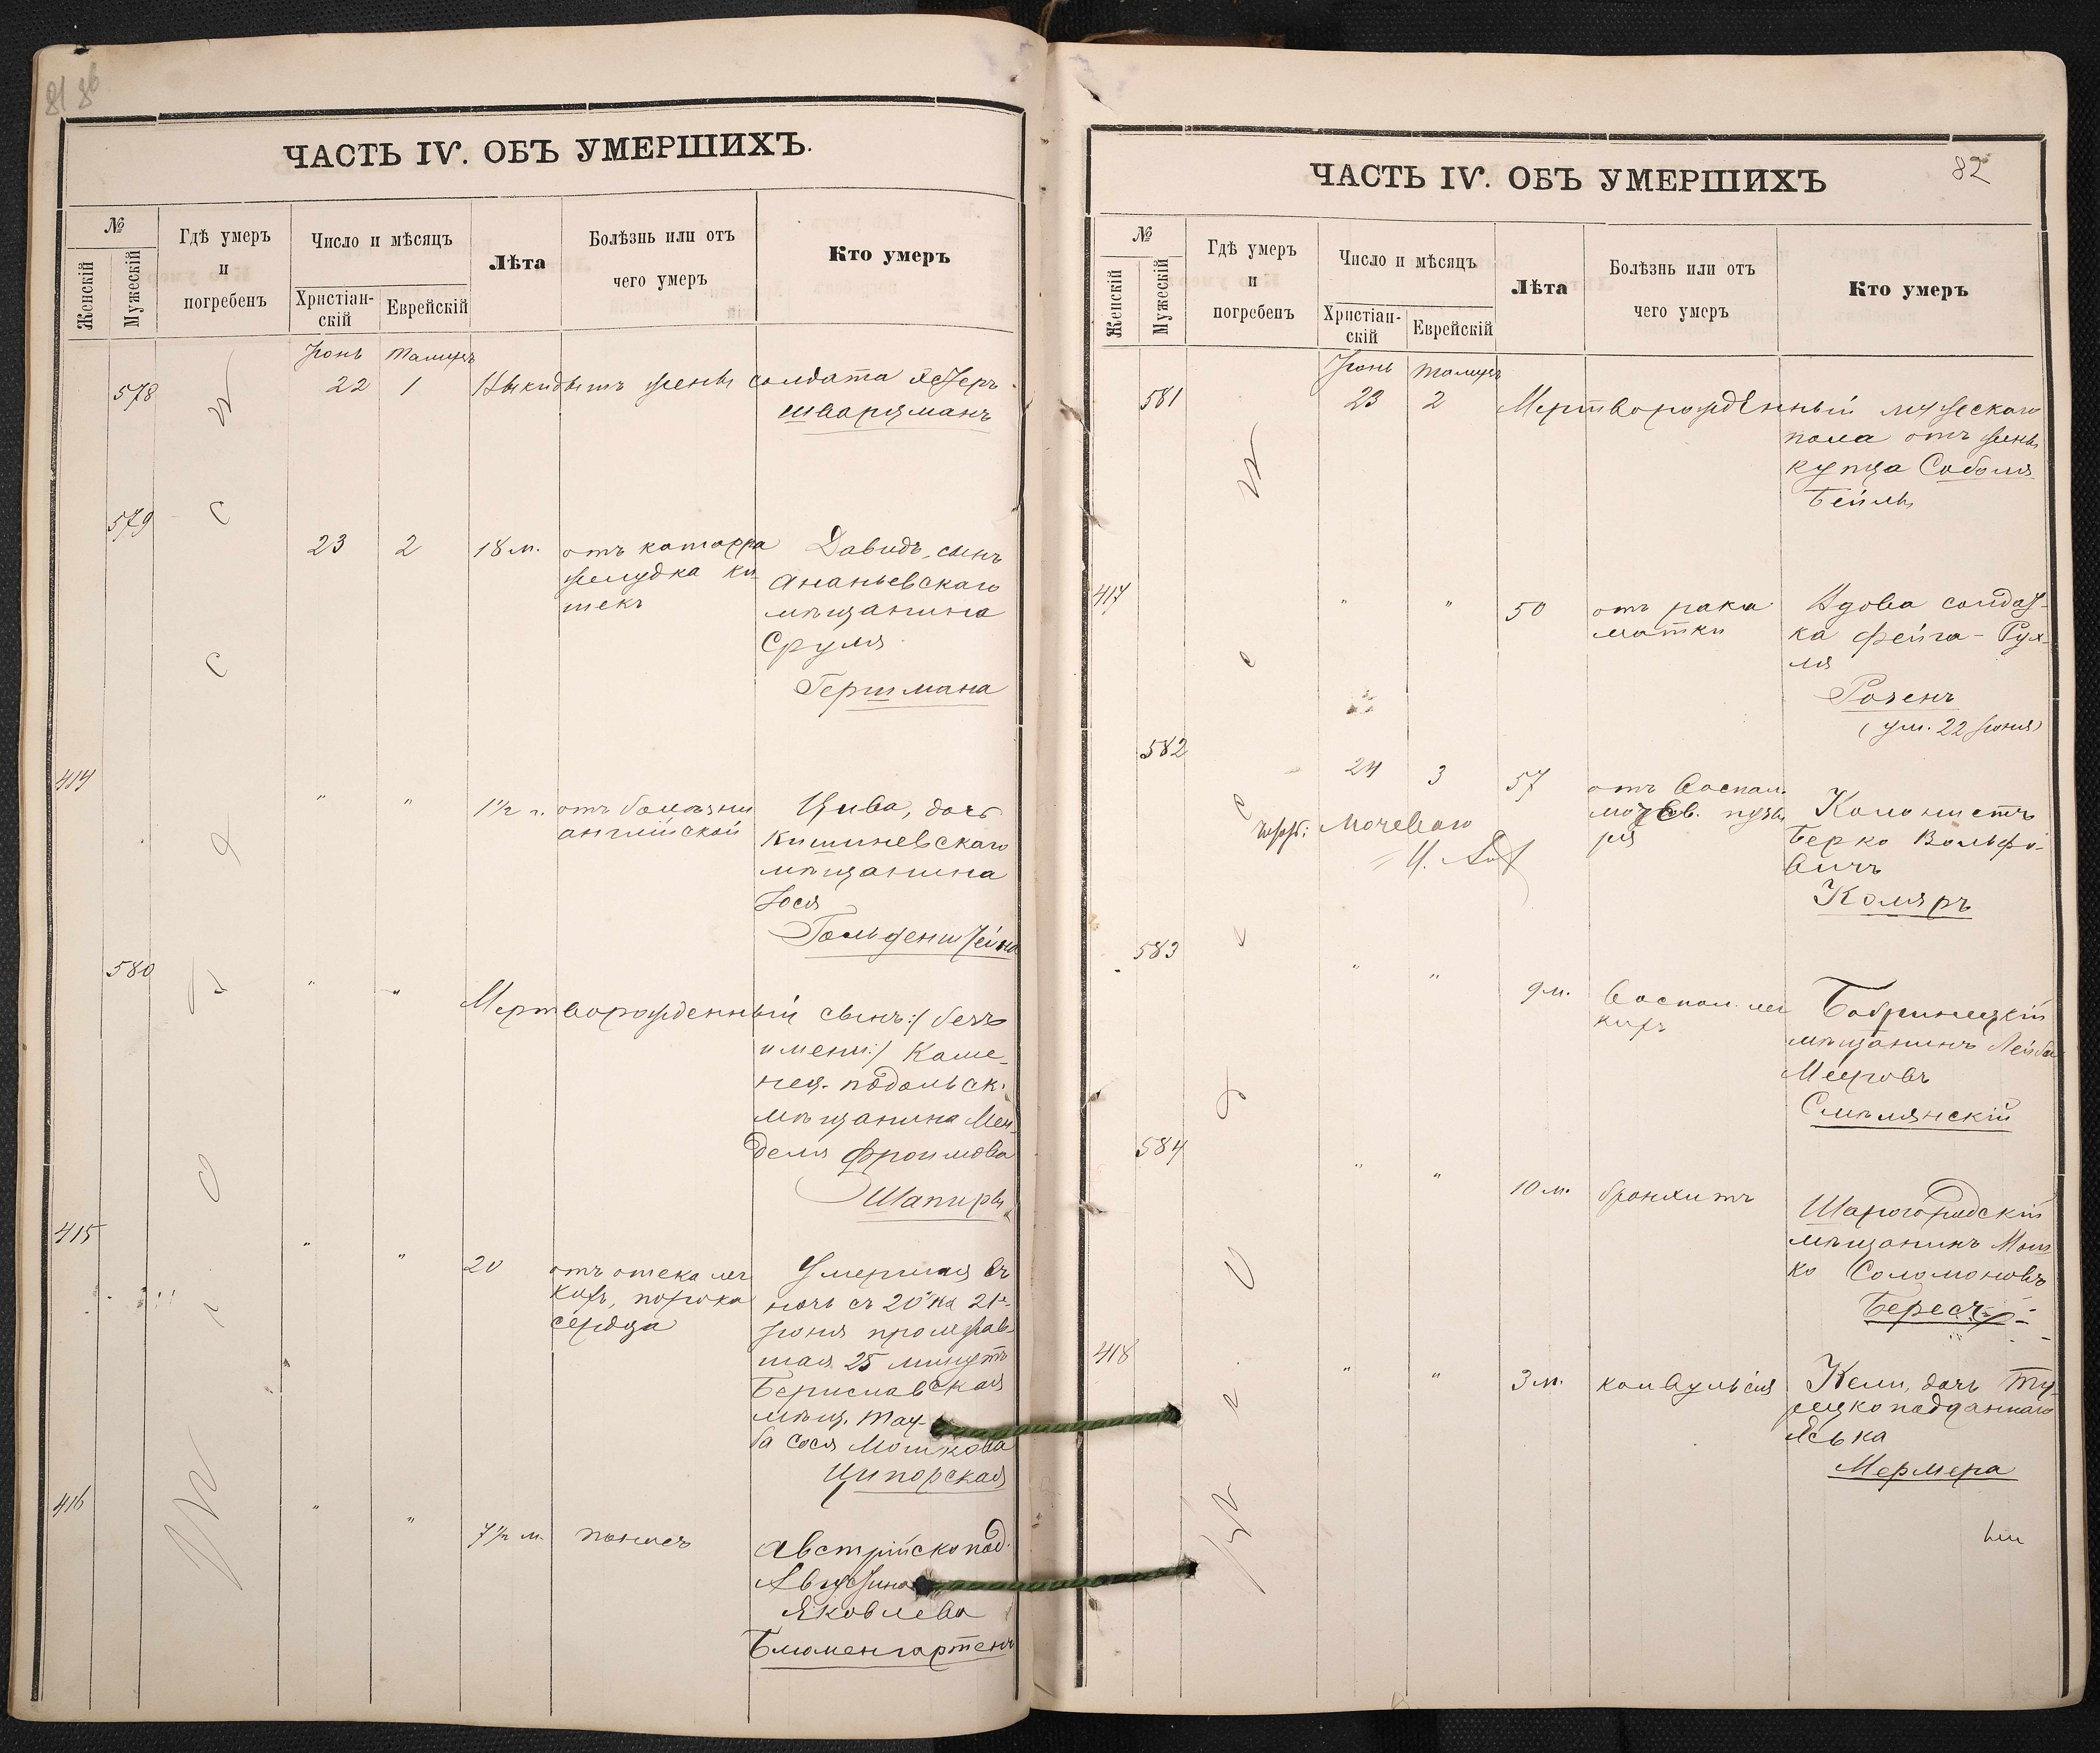 81 86
ЧАСТЬ IV. ОБЪ УМЕРШИХЪ.
№
Женскій
Мужескій
Гдѣ умеръ
и
погребенъ
Число и мѣсяцъ
Христіан-
скій
Еврейскій
Лѣта
Болѣзнь или отъ
чего умеръ
Кто умеръ
Іюнь Тамузъ
578 22 1 Выкидышъ жены солдата Эстеръ
Шварцманъ
579
23 2 18 м. отъ катарра Давидъ, сынъ
желудка ки- Ананьевскаго
шекъ мѣщанина
Сруля
Гершмана
414
" " 1½ г. отъ болѣзни Цива, дочь
англійской Кишиневскаго
мѣщанина
Іося
Гольденштейна
580
" " Мертворожденный сынъ :/ безъ
имени :/ Каме-
нец. подольск.
мѣщанина Мен-
деля Фроимова
Шапиры
415
" " 20 отъ отека лег Умершая въ
кихъ, порока ночь съ 20 на 21
сердца Іюня прожив-
шая 25 минутъ
Бериславская
мѣщ. Тау-
ба Сося Мошкова
Ципорская
416
" " 7½ м. поносъ Австрійскопод.
Августина
Яковлева
Блюменгартенъ
82
ЧАСТЬ IV. ОБЪ УМЕРШИХЪ
№
Женскій
Мужескій
Гдѣ умеръ
и
погребенъ
Число и мѣсяцъ
Христіан-
скій
Еврейскій
Лѣта
Болѣзнь или отъ
чего умеръ
Кто умеръ
Іюнь Тамузъ
581 23 2 Мертворожденный мужескаго
пола отъ жены
купца Соболя
Бейлы
417
" " 50 отъ рака Вдова солдат-
матки ка Фейга-Рух-
ля
Розенъ
(ум. 22 Іюня)
582
24 3 57 отъ Воспал.
мочев. пузы Колонистъ
ря Берко Вольфо-
вичъ
Коляръ
Мочеваго
583
" " 9 м. Воспал. лег Бобринецкій
кихъ мѣщанинъ Лейба
Мееровъ
Смѣлянскій
584
" " 10 м. бронхитъ Шарогородскій
мѣщанинъ Мош
ко Соломоновъ
418
" " 3 м. конвульсія Кели, дочь Ту-
рецкоподданнаго
Яська
Мермера